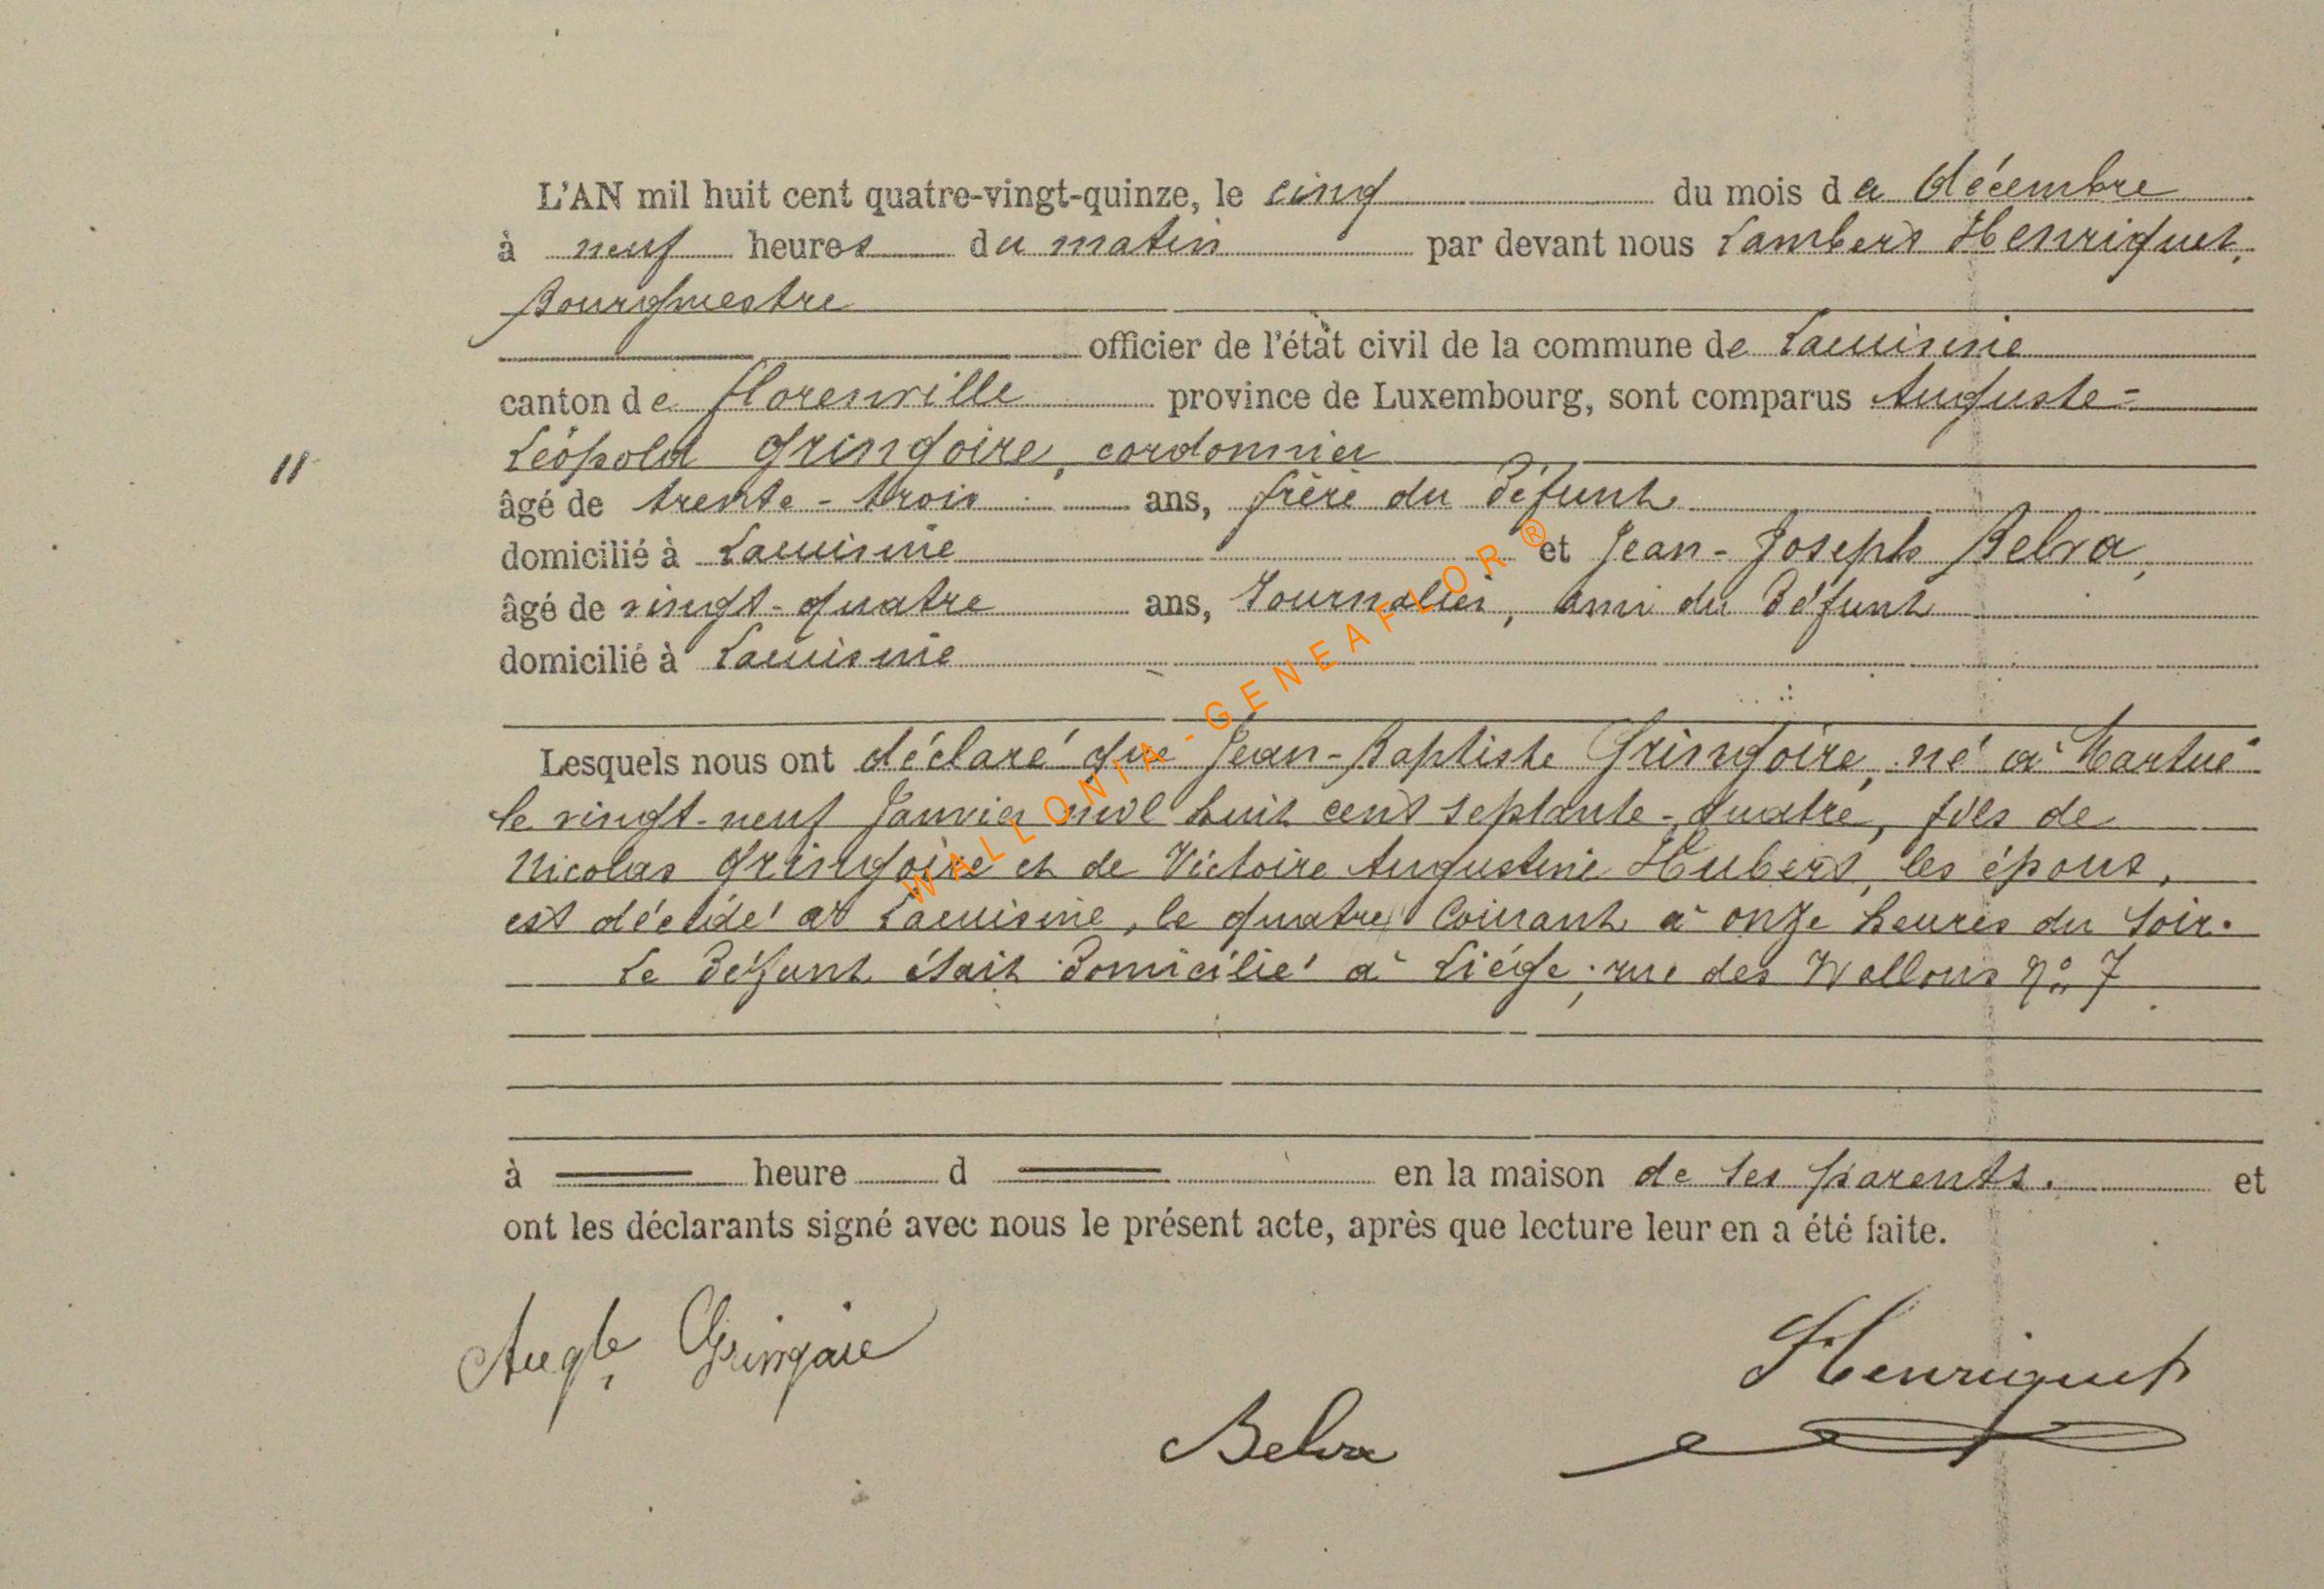 L'AN mil huit cent quatre-vingt-quinze, le cinq du mois de décembre
à neuf heures du matin par devant nous Lambert Henriquet,
Bourgmestre
officier de l'état civil de la commune de Lacuisine
canton de Florenville province de Luxembourg, sont comparus Auguste=
Léopold Gringoire, cordonnier
11
âgé de trente-trois ans, frère du défunt
domicilié à Lacuisine et Jean-Joseph Belva,
âgé de vingt-quatre ans, Journalier, ami du défunt
domicilié à Lacuisine
Lesquels nous ont déclaré que Jean-Baptiste Gringoire, né à Martué
le vingt-neuf Janvier mil huit cent septante-quatre, fils de
Nicolas Gringoire et de Victoire Augustine Hubert, les époux,
est décédé à Lacuisine, le quatre Courant à onze heures du Soir.
Le défunt était domicilié à Liége, rue des Wallons No 7
à heure d en la maison de ses parents. et
ont les déclarants signé avec nous le présent acte, après que lecture leur en a été faite.
Augte Gringoire
Henriquet
Belva
WALLONIA-GENEAFLOR®